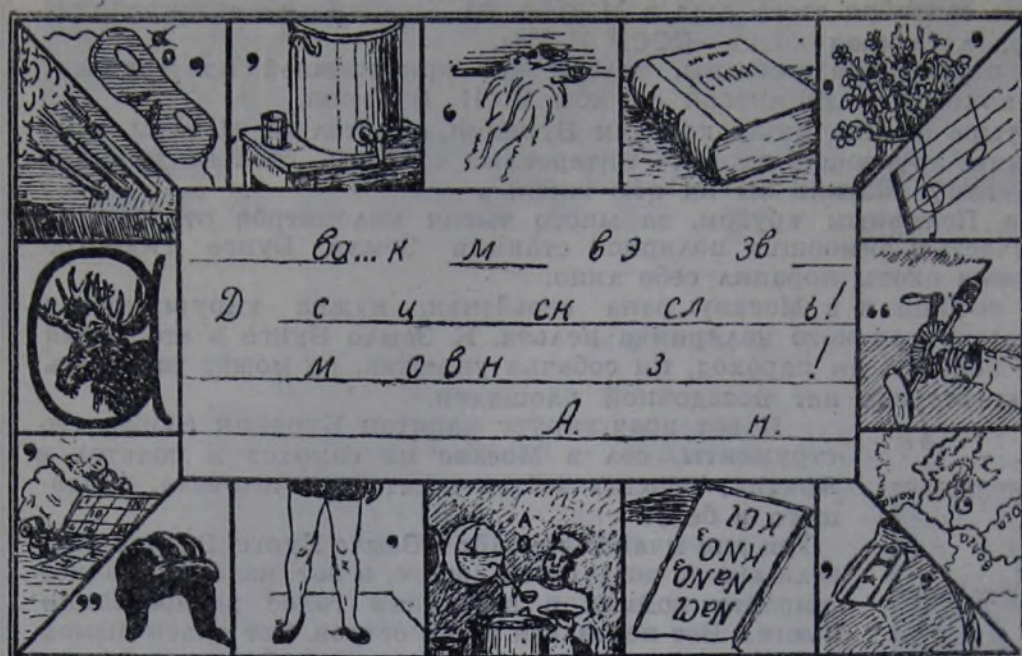 СТИХИ
ва...к м вэ зв
Д с ц сн сл ь!
м о в н з !
А. н.
А
KCl
KNO₃
NaNO₃
NaCl